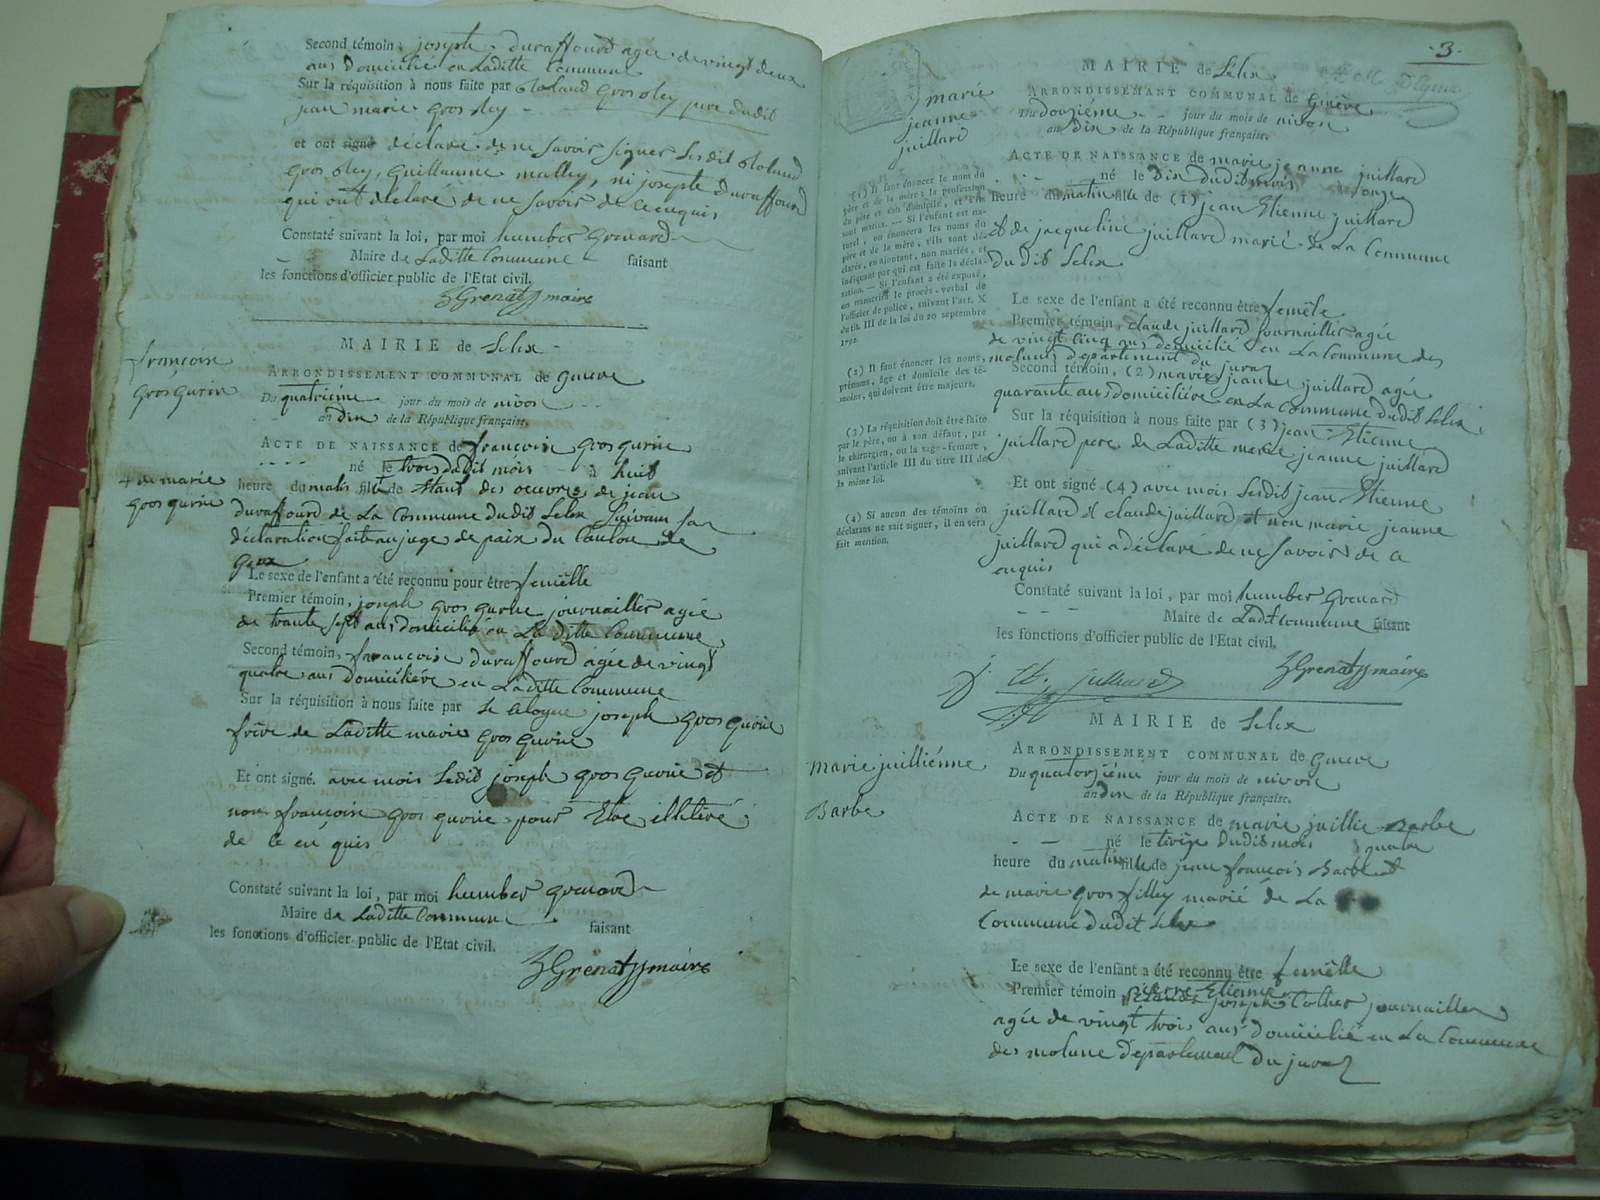 Second témoin, joseph duraffourd agée de vingt deux
ans domicilié en Laditte Commune
Sur la réquisition à nous faite par groslley pere dudit
jean marie groslley
et ont signé déclaré de ne savoir signer lesdit
groslley, guillaume mathey, ni joseph duraffourd
qui ont déclaré de ne savoir de ce enquis
Constaté suivant la loi, par moi humber grenard
Maire de Laditte Commune faisant
les fonctions d'officier public de l'Etat civil.
Grenat maire
MAIRIE de Lelex
françoise
gros gurin
ARRONDISSEMENT COMMUNAL de geneve
Du quatriéme jour du mois de nivose
an dix de la République française.
ACTE DE NAISSANCE de françoise gros gurin
né le trois dudit mois à huit
marie
gros gurin
heure du matin fille de étant des oeuvres de jean
duraffourd de La Commune dudit Lelex suivant sa
déclaration faite au juge de paix du Canton de
gex
Le sexe de l'enfant a été reconnu pour être femélle
Premier témoin, joseph gros gurin journailler agée
de trante sept ans domicilié en La ditte Commune
Second témoin, françoise duraffourd agée de vingt
quatre ans domiciliére en Laditte Commune
Sur la réquisition à nous faite par le citoyen joseph gros gurin
frére de Laditte marie gros gurin
Et ont signé. avec mois Ledit joseph gros gurin et
non françoise gros gurin pour être illetiré
de ce en quis
Constaté suivant la loi, par moi humber grenard
Maire de Laditte Commune faisant
les fonctions d'officier public de l'Etat civil.
Grenat maire
3.
MAIRIE de Lelex
marie
jeanne
juillard
ARRONDISSEMENT COMMUNAL de Genève
Du Douziéme jour du mois de nivose
an dix de la République française.
ACTE DE NAISSANCE de marie jeanne juillard
né le dix dudit mois onze
heure du matin fille de (1) jean Etienne juillard
et de jacqueline juillard marié de La Commune
du dit Lelex
(1) Il faut énoncer le nom du
père et de la mère, la profession
du père et son domicile, et s'ils
sont mariés. — Si l'enfant est na-
turel, on énoncera les noms du
père et de la mère, s'ils sont dé-
clarés, en ajoutant, non mariés, et
indiquant par qui est faite la décla-
ration. — Si l'enfant a été exposé,
on transcrira le procès-verbal de
l'officier de police, suivant l'art. X
du tit. III de la loi du 20 septembre
1792.
(2) Il faut énoncer les noms,
prénoms, âge et domicile des té-
moins, qui doivent être majeurs.
(3) La réquisition doit être faite
par le père, ou à son défaut, par
le chirurgien, ou la sage-femme,
suivant l'article III du titre III de
la même loi.
(4) Si aucun des témoins ou
déclarans ne sait signer, il en sera
fait mention.
Le sexe de l'enfant a été reconnu être femélle
Premier témoin, claude juillard journailler agée
de vingt cinq ans domicilié en La Commune des
molunes département du jura
Second témoin, (2) marie jeanne juillard agée
quarante ans domiciliére en La Commune dudit Lelex
Sur la réquisition à nous faite par (3) jean Etienne
juillard pere de Laditte marie jeanne juillard
Et ont signé (4) avec mois Lesdit jean Etienne
juillard et claude juillard et non marie jeanne
juillard qui a déclaré de ne savoir de ce
enquis
Constaté suivant la loi, par moi humber grenard
Maire de Ladt Commune faisant
les fonctions d'officier public de l'Etat civil.
Grenat maire
MAIRIE de Lelex
marie juilliénne
Barbe
ARRONDISSEMENT COMMUNAL de Geneve
Du quatorziéme jour du mois de nivose
an dix de la République française.
ACTE DE NAISSANCE de marie juillie Barbe
né le treize dudit mois quatre
heure du matin fille de jean françois Barbe et
de marie gros filley marié de La
Commune dudit Lelex
Le sexe de l'enfant a été reconnu être femélle
Premier témoin pierre Etienne
joseph journailler
agée de vingt trois ans domicilié en La Commune
des molune département du jura